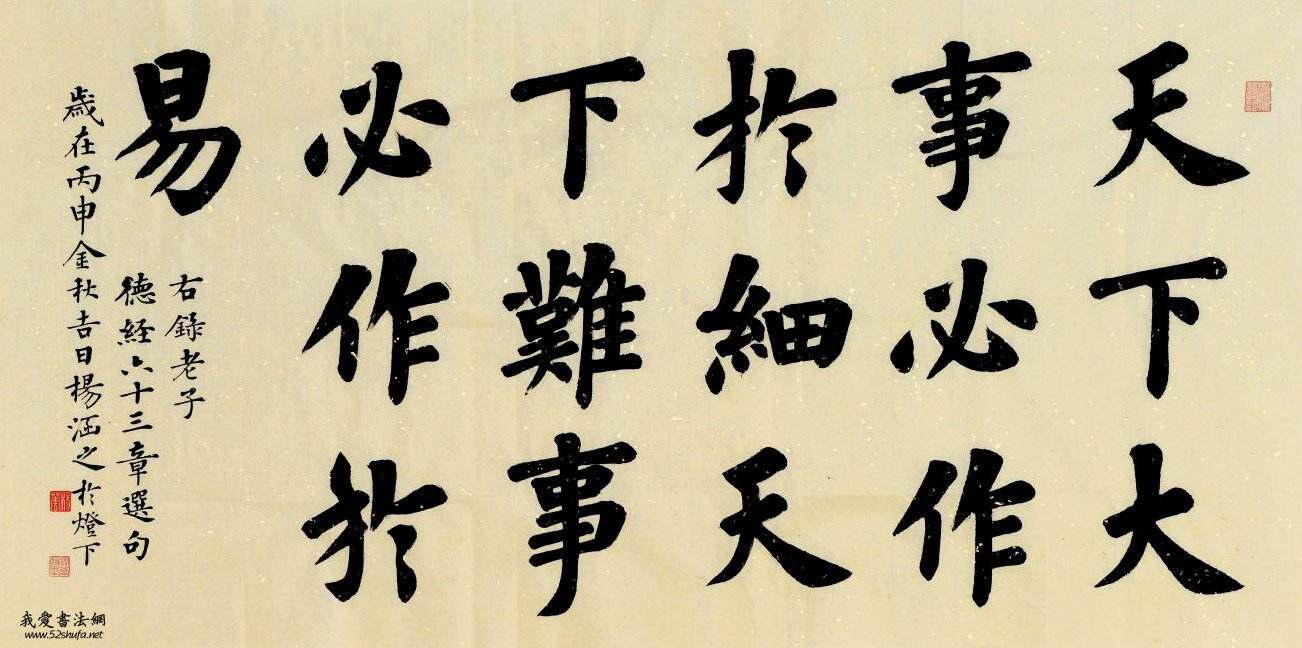 天下大
事必作
於細天
下難事
必作於
易
右錄老子
德經六十三章選句
歲在丙申金秋吉日楊涵之於燈下
我愛書法網
www.52shufa.net